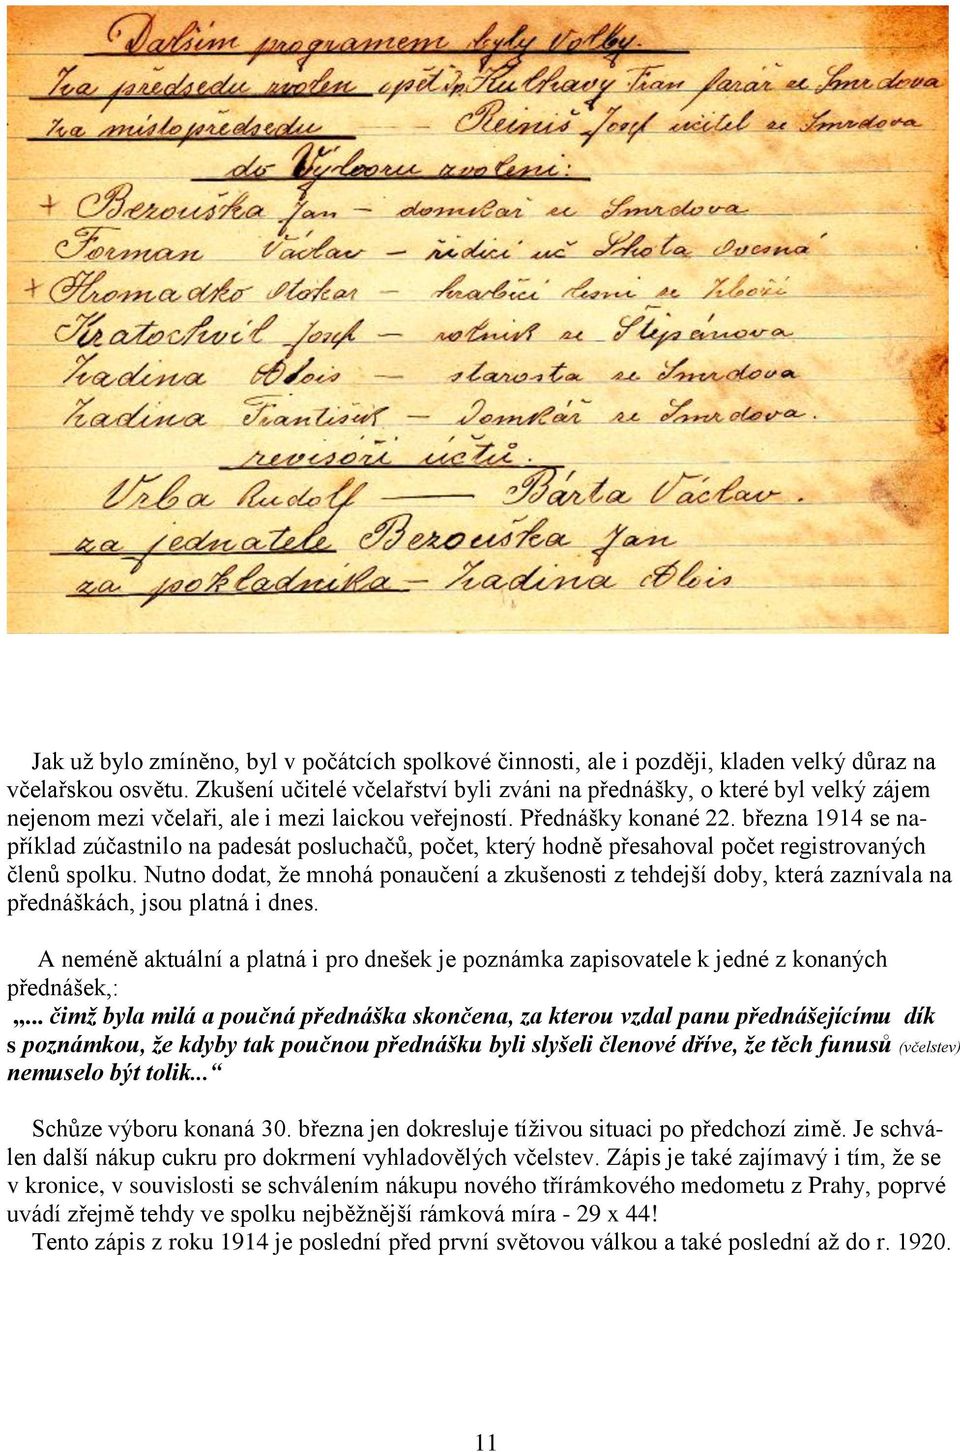 Dalším programem byly Volby.
Za předsedu zvolen opět Kulhavy Fran farář ze Smrdova
za místopředsedu — Reiniš Josef učitel ze Smrdova
do Výboru zvoleni:
+ Bezouška Jan — domkař ze Smrdova
Forman Václav — řídící uč Lhota Ovesná
+ Hromadko Otokar — hraběcí lesní ze Zboží
Kratochvíl Josef — rolník ze Štěpánova
Zadina Alois — starosta ze Smrdova
Zadina František — Domkář ze Smrdova.
revisoři účtů.
Vrba Rudolf — Bárta Václav.
za jednatele Bezouška Jan
za pokladníka — Zadina Alois
Jak už bylo zmíněno, byl v počátcích spolkové činnosti, ale i později, kladen velký důraz na
včelařskou osvětu. Zkušení učitelé včelařství byli zváni na přednášky, o které byl velký zájem
nejenom mezi včelaři, ale i mezi laickou veřejností. Přednášky konané 22. března 1914 se na-
příklad zúčastnilo na padesát posluchačů, počet, který hodně přesahoval počet registrovaných
členů spolku. Nutno dodat, že mnohá ponaučení a zkušenosti z tehdejší doby, která zaznívala na
přednáškách, jsou platná i dnes.
A neméně aktuální a platná i pro dnešek je poznámka zapisovatele k jedné z konaných
přednášek,:
„... čimž byla milá a poučná přednáška skončena, za kterou vzdal panu přednášejícímu dík
s poznámkou, že kdyby tak poučnou přednášku byli slyšeli členové dříve, že těch funusů (včelstev)
nemuselo být tolik...“
Schůze výboru konaná 30. března jen dokresluje tíživou situaci po předchozí zimě. Je schvá-
len další nákup cukru pro dokrmení vyhladovělých včelstev. Zápis je také zajímavý i tím, že se
v kronice, v souvislosti se schválením nákupu nového třírámkového medometu z Prahy, poprvé
uvádí zřejmě tehdy ve spolku nejběžnější rámková míra - 29 x 44!
Tento zápis z roku 1914 je poslední před první světovou válkou a také poslední až do r. 1920.
11